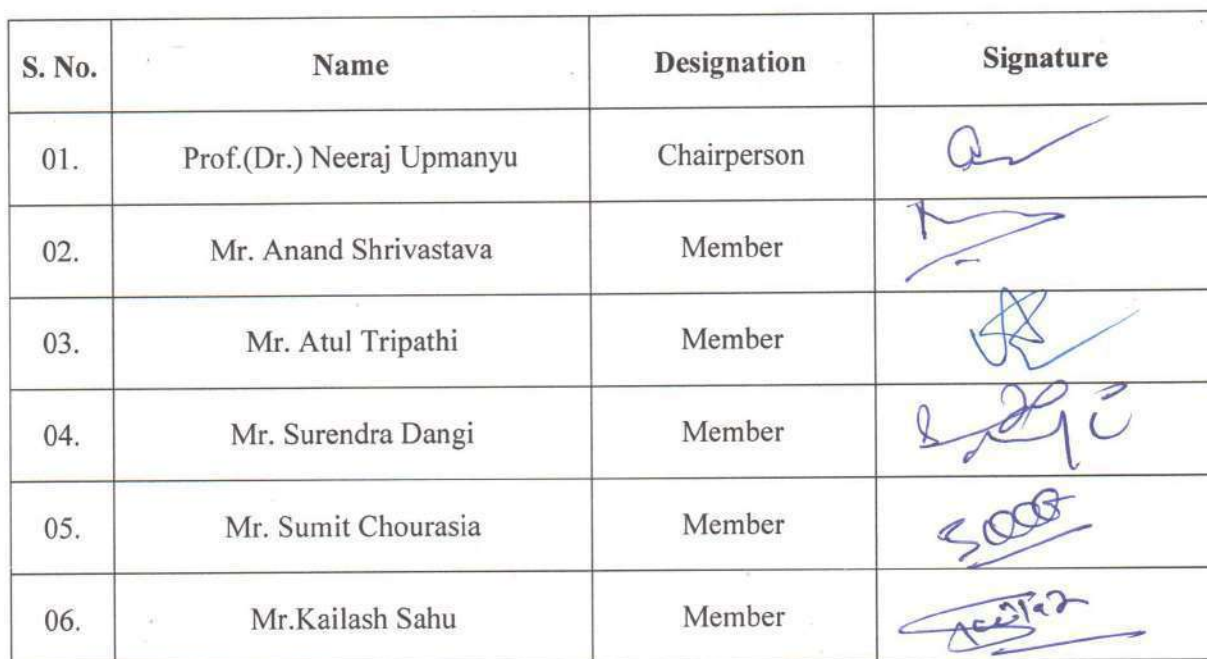 S. No. Name Designation Signature
01. Prof.(Dr.) Neeraj Upmanyu Chairperson
02. Mr. Anand Shrivastava Member
03. Mr. Atul Tripathi Member
04. Mr. Surendra Dangi Member
05. Mr. Sumit Chourasia Member
06. Mr.Kailash Sahu Member